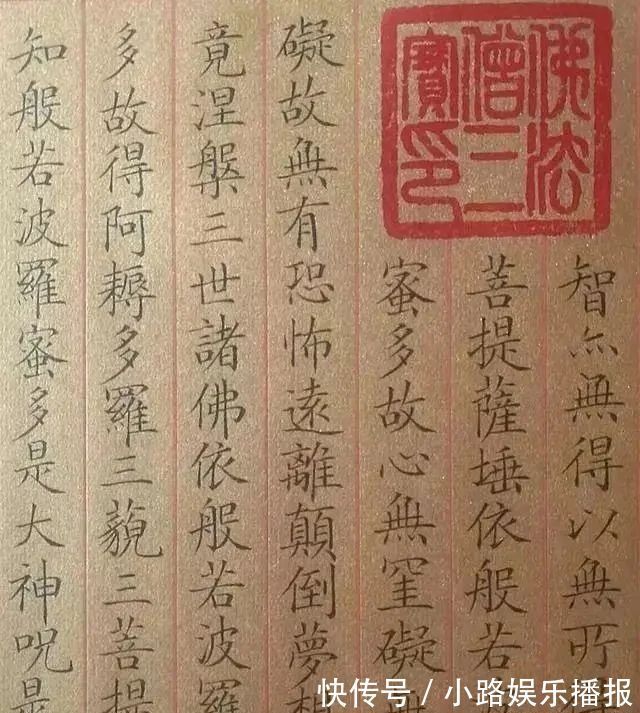 佛法
僧三
寶印
智亦無得以無所
菩提薩埵依般若
蜜多故心無罣礙無
礙故無有恐怖遠離顛倒夢想
竟涅槃三世諸佛依般若波羅
多故得阿耨多羅三藐三菩提
知般若波羅蜜多是大神呪是
快传号/小路娱乐播报